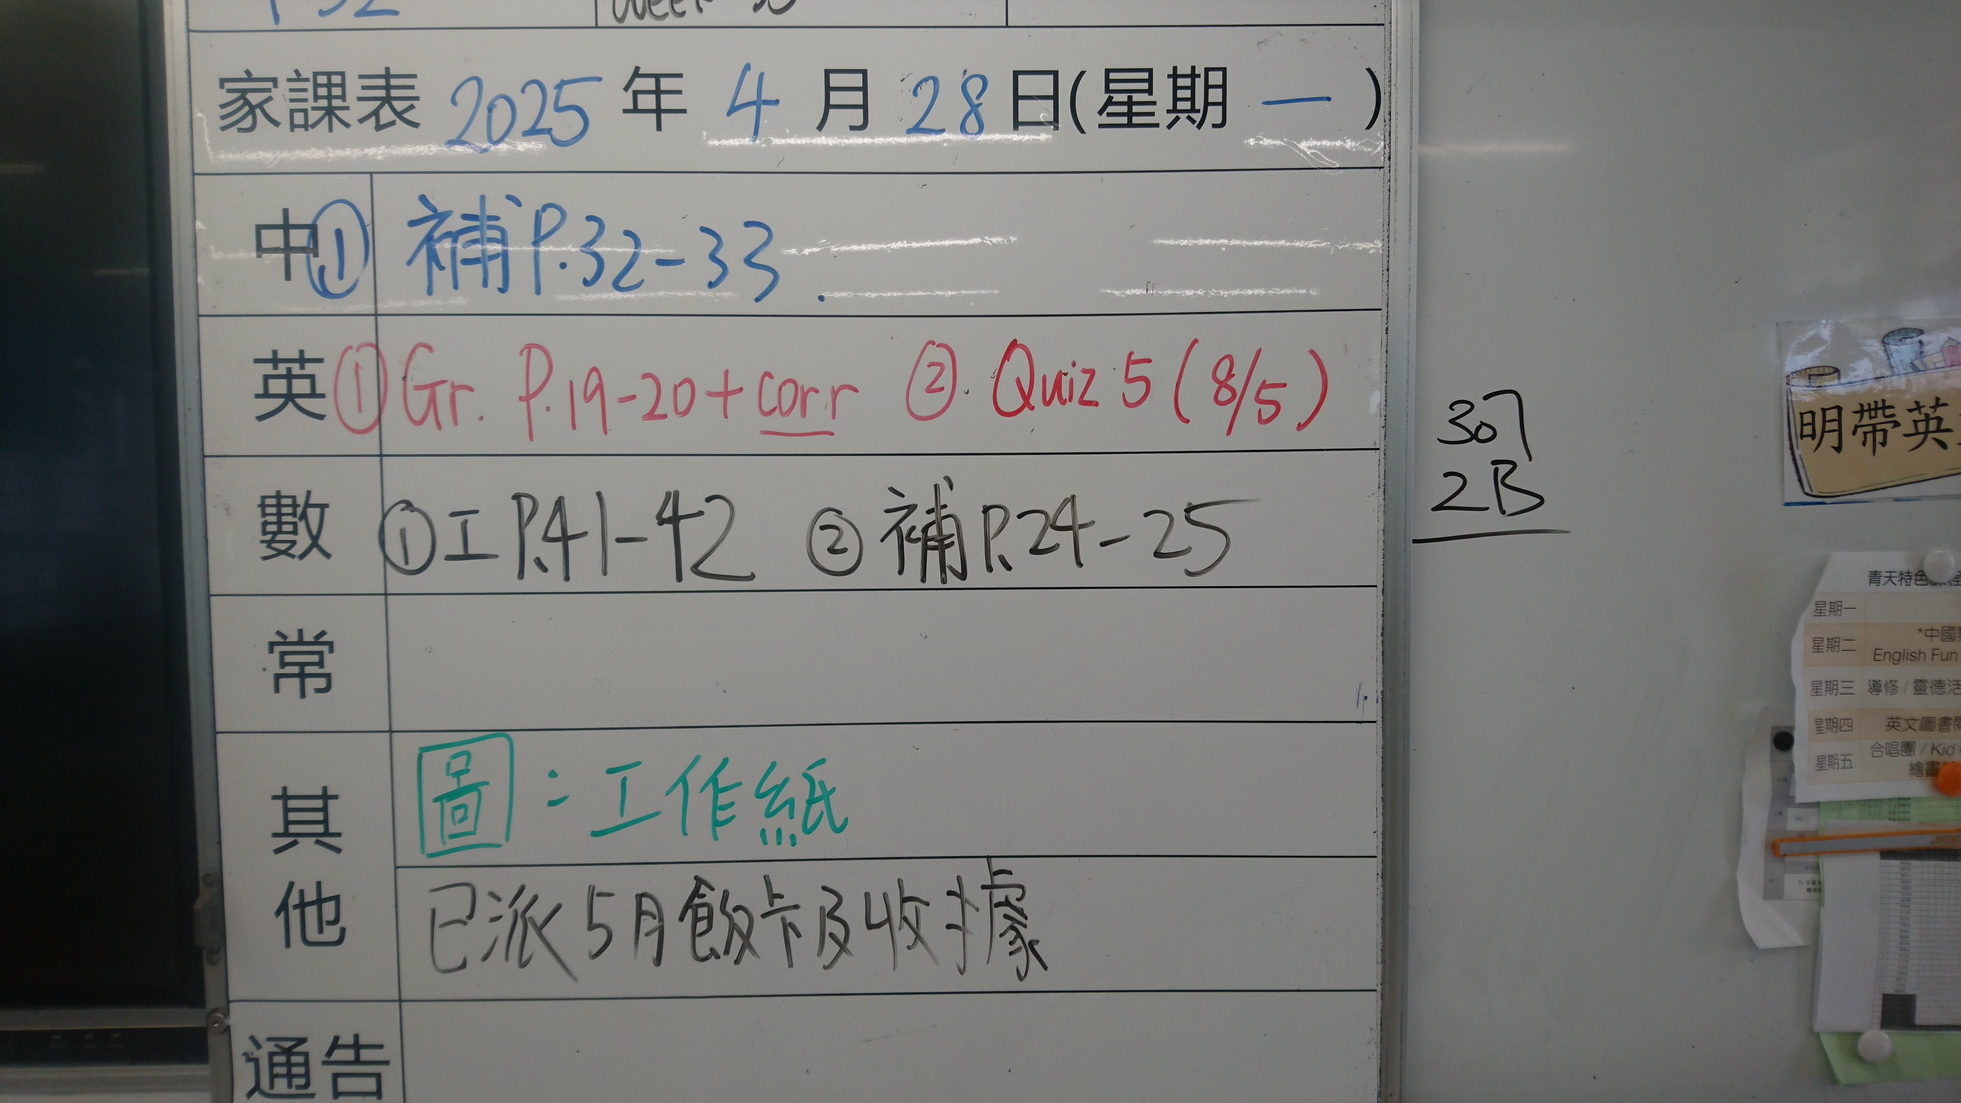 家課表 2025 年 4 月 28 日(星期 一 )
中① 補 P.32-33.
英 ① Gr. P.19-20 + corr ② Quiz 5 (8/5)
數 ① 工 P.41-42 ② 補 P.24-25
常
其他
圖：工作紙
已派5月飯卡及收據
通告
307
2B
明帶英
青天特色
星期一
星期二 *中國
English Fun
星期三 導修 / 靈德活
星期四 英文圖書
星期五 合唱團 / Kid
繪畫